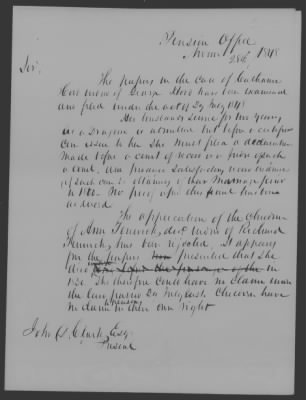 Pension Office
Novr 28th, 1848
Sir,
The papers in the case of Catharine
widow of George have been examined
and filed under the act of 29 July 1848
Her husbands service for two years
as a Dragoon is admitted but before a certificate
can issue to her She must file a declaration
made before a court of record or a judge of such
a court. And produce satisfactory record evidence
if such can be obtained of their Marriage prior
to 1800. No proof upon this point has been
adduced.
The application of the children
of Ann Fenwick, decd widow of Richard
Fenwick, has been rejected, it appears
from the papers presented that she
died in
1830. She therefore could have no claim under
the law passed 29 July last. Children have
no claim in their own right
John S. Clark, Esq
Present